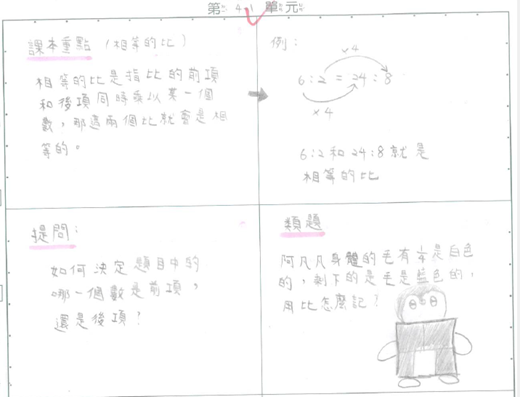 第 4-1 單元
課本重點 (相等的比)
相等的比是指比的前項
和後項同時乘以某一個
數,那這兩個比就會是相
等的。
例:
×4
6:2 = 24:8
×4
6:2和24:8就是
相等的比
提問:
如何決定題目中的
哪一個數是前項,
還是後項?
類題
阿凡凡身體的毛有
是白色
的,剩下的是毛是藍色的,
用比怎麼記?